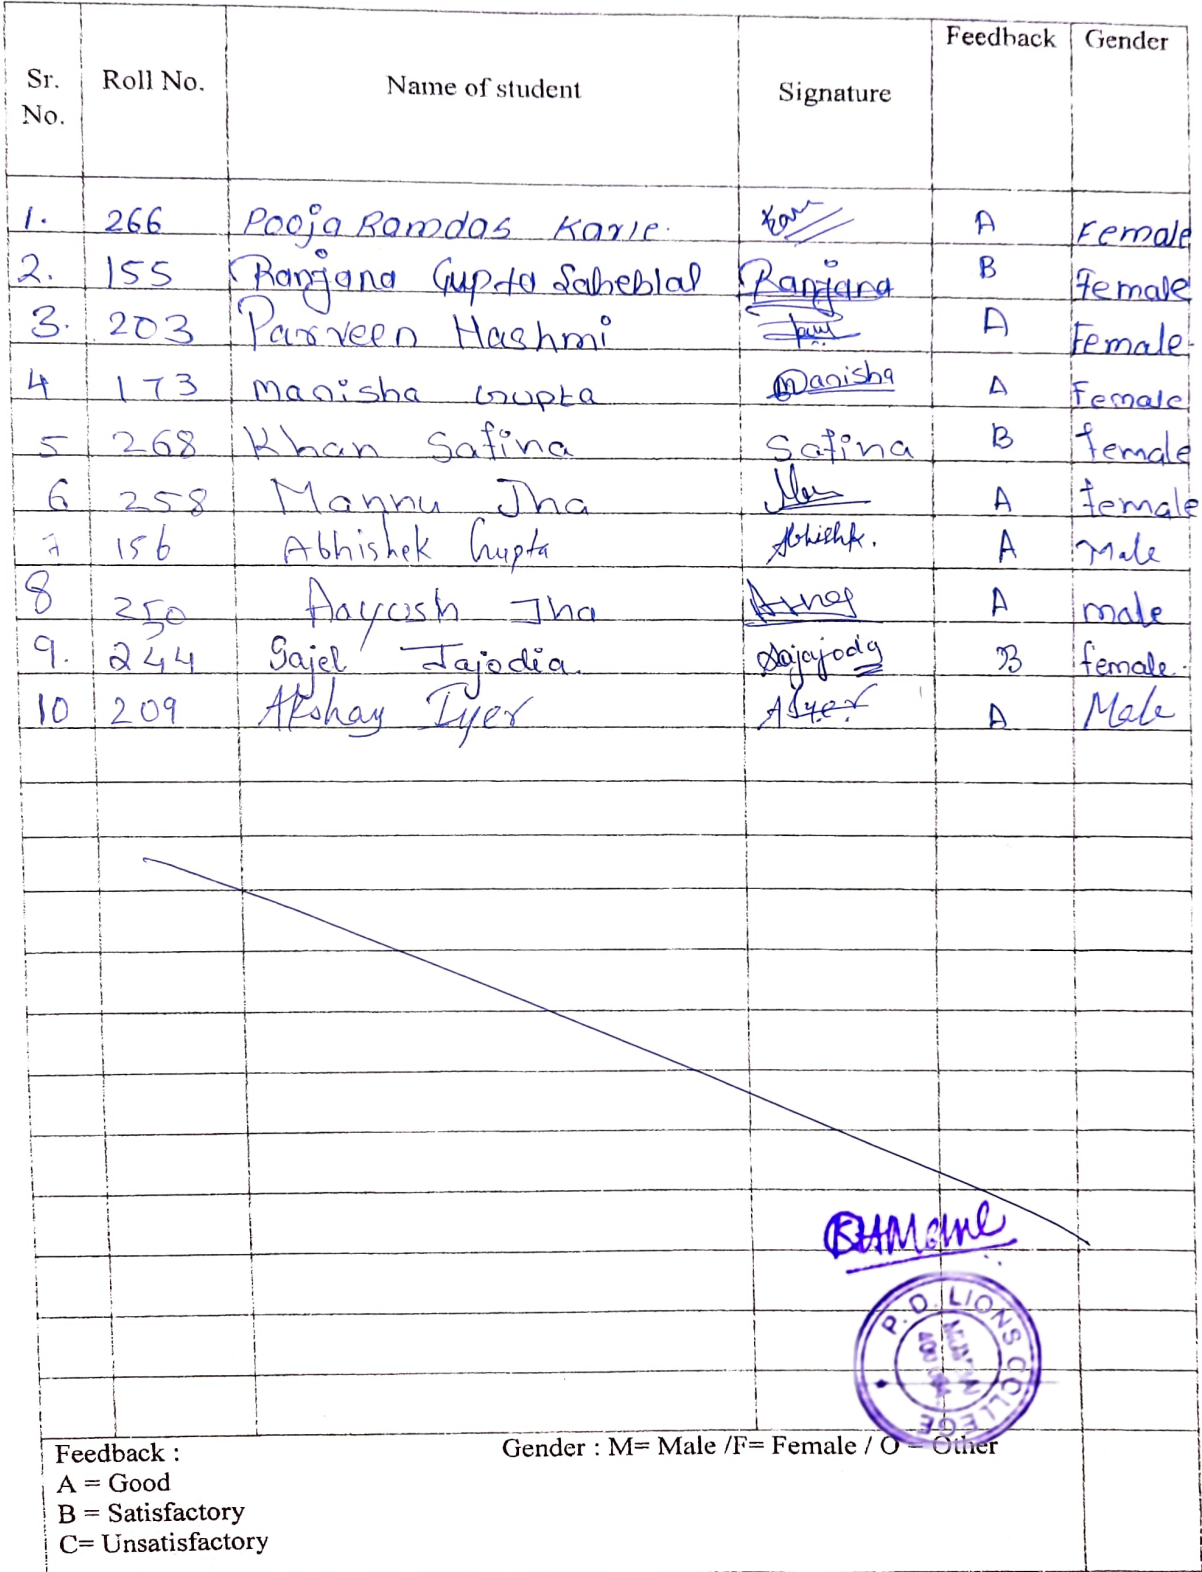 Sr. No. Roll No. Name of student Signature Feedback Gender
1. 266 Pooja Ramdas Karle. Female A
2. 155 Ranjana Gupta Saheblal Ranjana B Female
3. 203 Parveen Hashmi A Female.
4 173 Manisha Gupta Manisha A Female
5 268 Khan Safina Safina B Female
6 258 Mannu Jha A Female
7 156 Abhishek Gupta Abhishk. A Male
8 250 Aayush Jha A male
9. 244 Sajel Jajodia. B female.
10 209 Akshay Iyer AIyer A Male
P. D. LIONS COLLEGE
Feedback : Gender : M= Male /F= Female / O = Other
A = Good
B = Satisfactory
C= Unsatisfactory